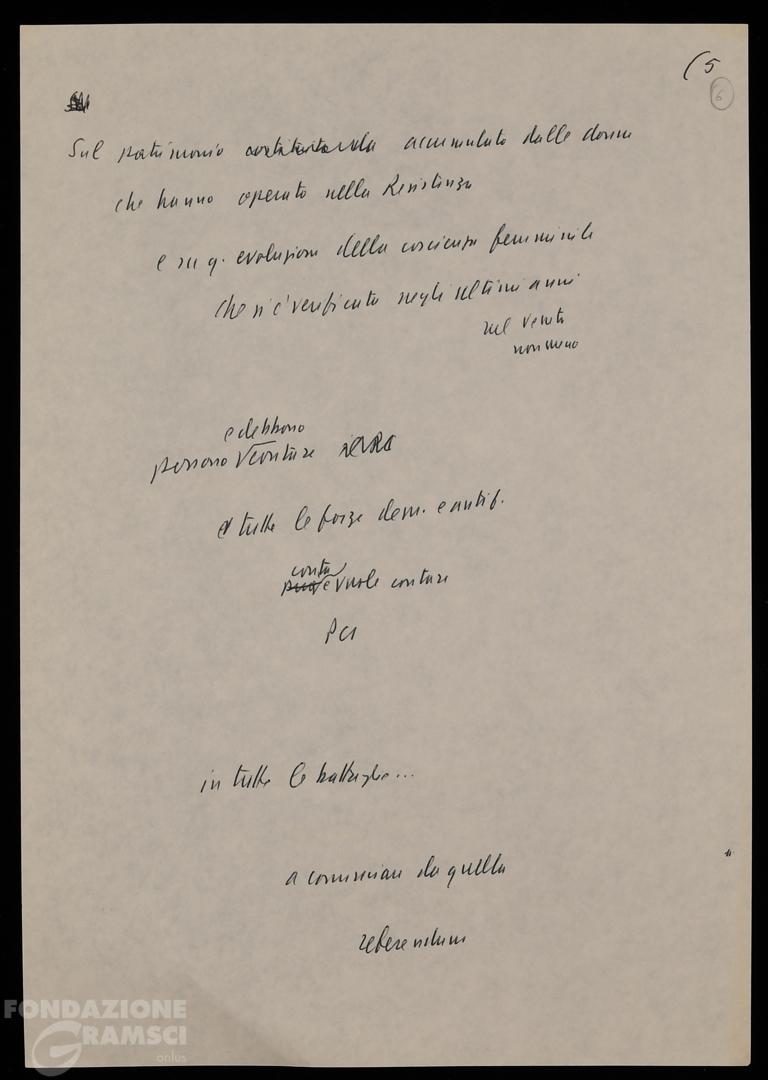 (5
6
Sul patrimonio accumulato dalle donne
che hanno operato nella Resistenza
e su q. evoluzione della coscienza femminile
che si è verificata negli ultimi anni
nel Veneto
non meno
e debbono
possono contare
e tutte le forze dem. e antif.
conta
e vuole contare
PCI
in tutte le battaglie...
a cominciare da quella
referendum
FONDAZIONE
GRAMSCI
onlus